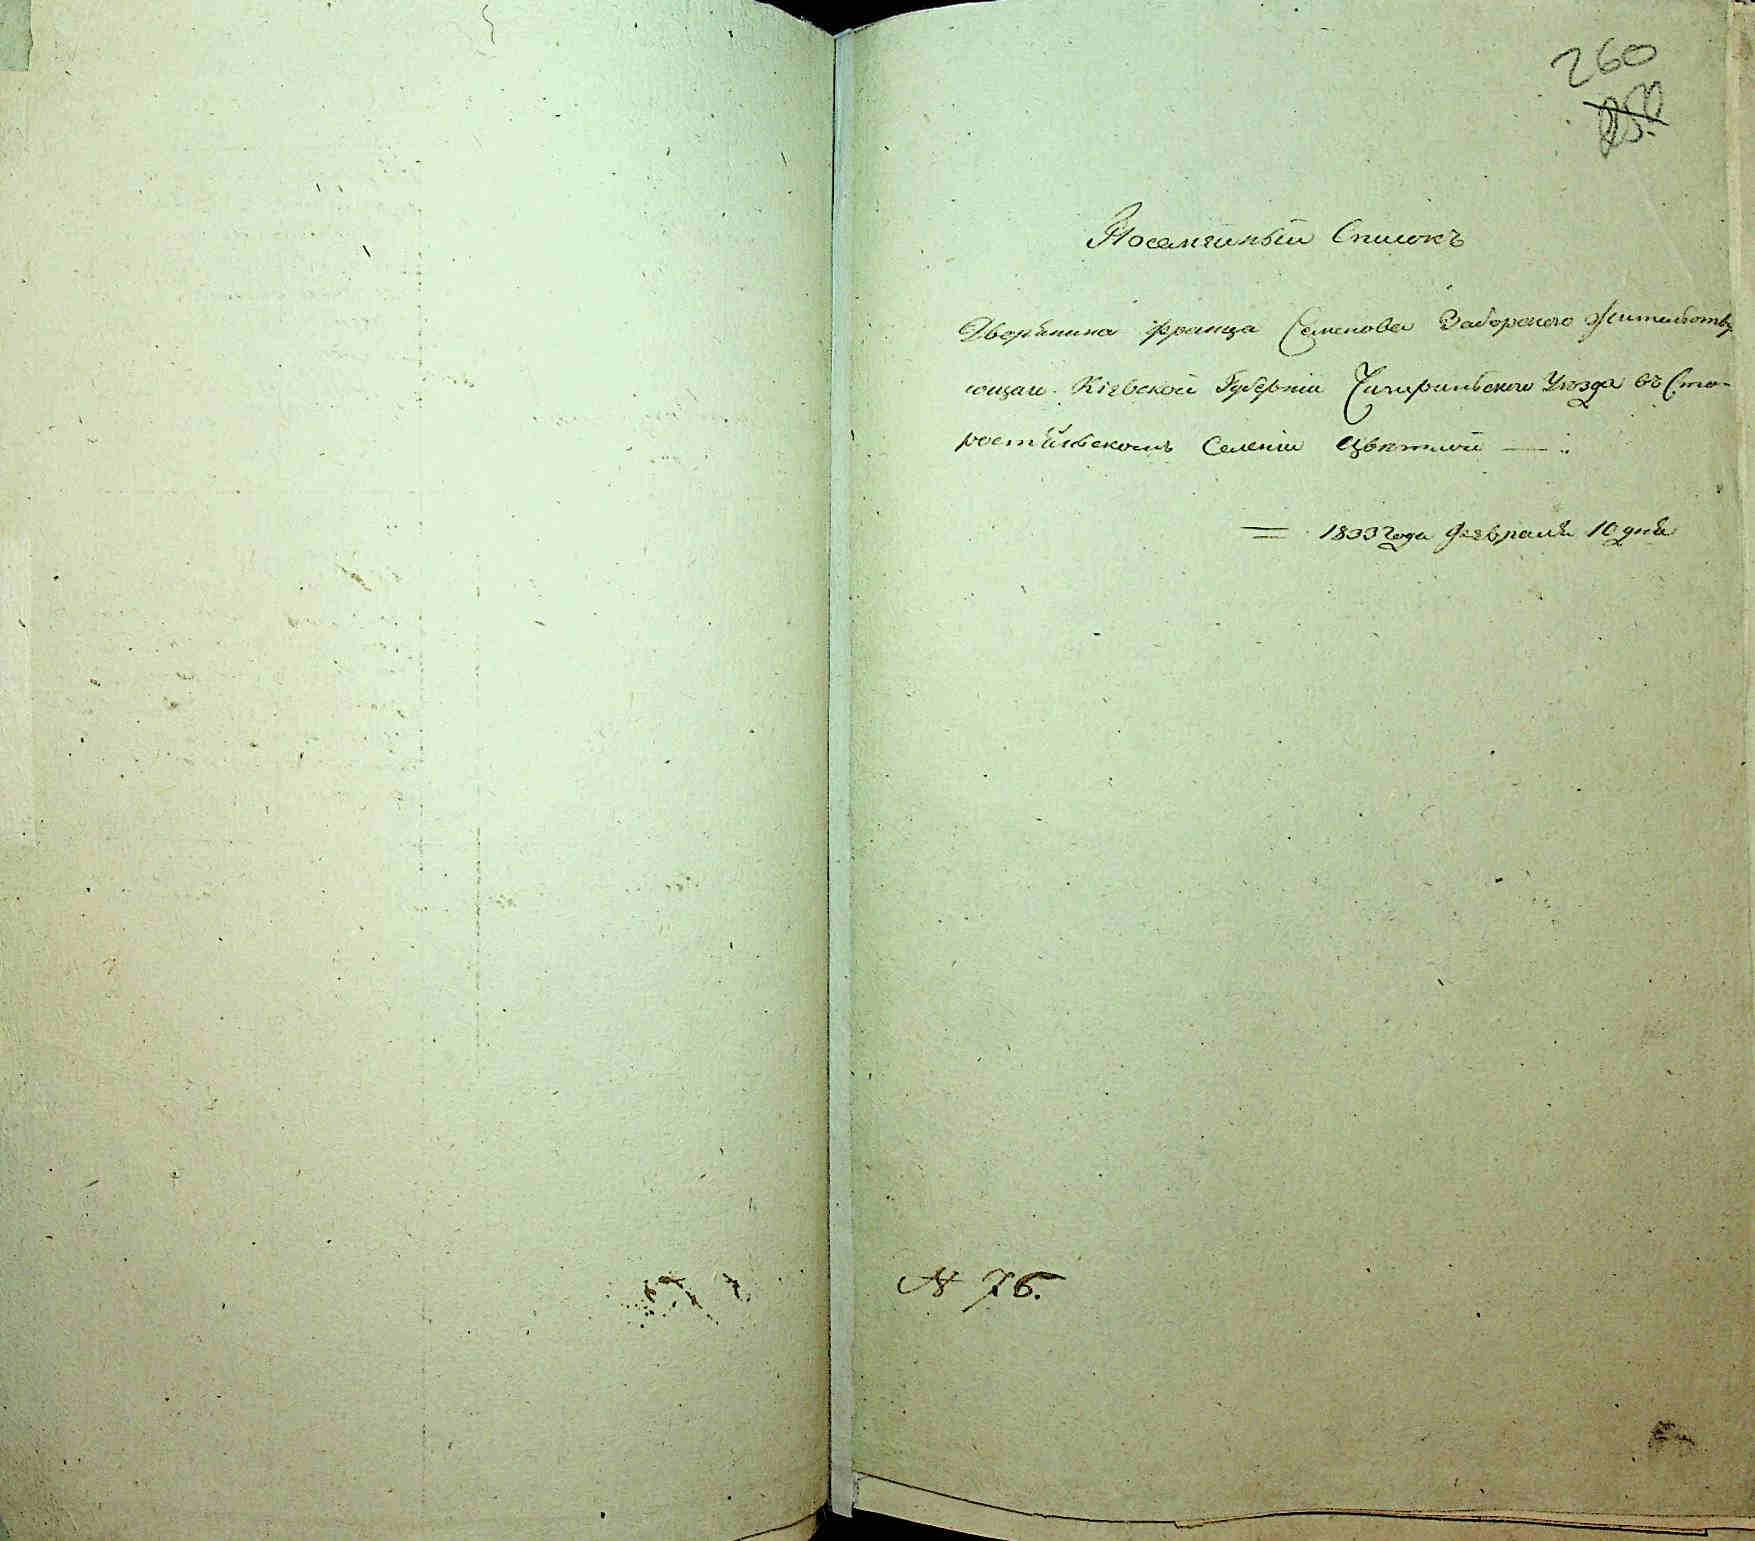 260
Посемейный Списокъ
Дворянина Франца Семенова Заборского Жительству
ющаго Кіевской Губерніи Чигиринского Уезда въ Ста-
ростинскомъ Селеніи Цветной —
= 1833 года Февраля 10 дня
№ 76.